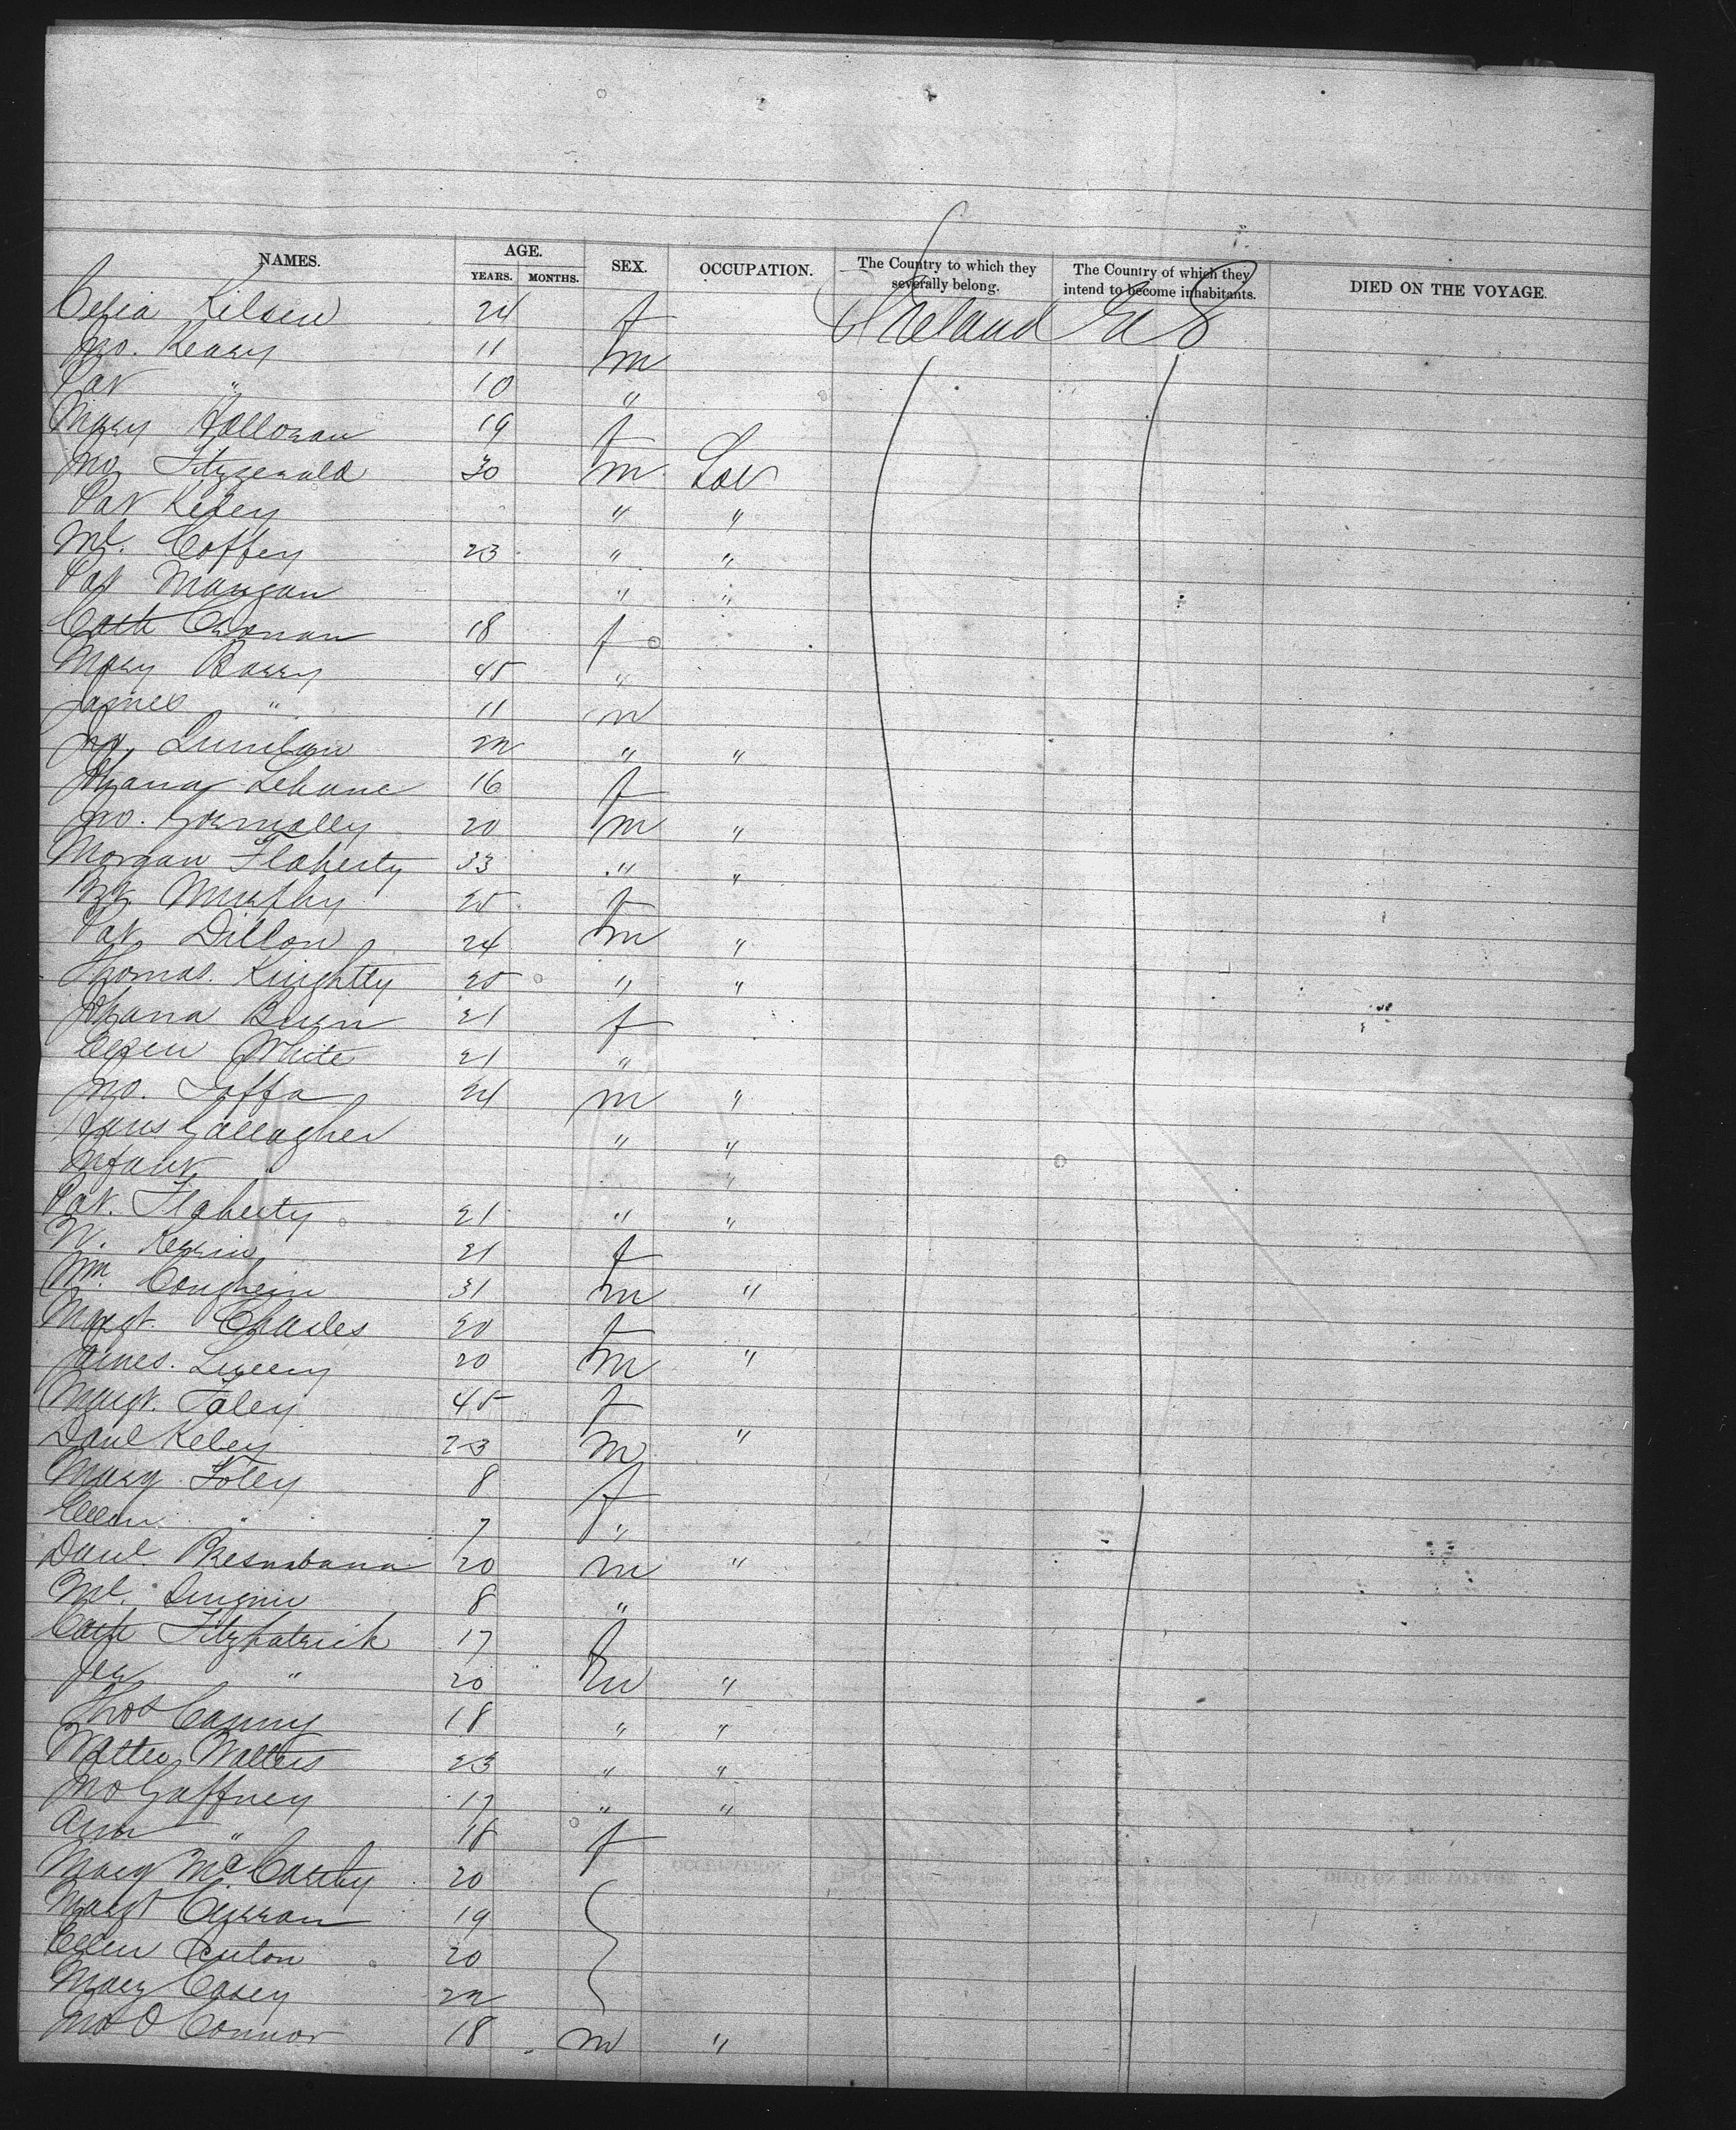 NAMES. AGE. SEX. OCCUPATION. The Country to which they severally belong. The Country of which they intend to become inhabitants. DIED ON THE VOYAGE.
YEARS. MONTHS.
Celia 24 f Ireland U S
Jno. Keary 11 m
Pat " 10 "
Mary Halloran 19 f
Jno Fitzgerald 30 m Lab
Pat Kelley " "
Ml. Coffey 23 " "
Pat Mangan " "
Cath Cronan 18 f
Mary Barry 45 "
James " 11 m
Jno. Quinlan 22 " "
Johana Lehane 16 f
Jno. Gormally 20 m "
Morgan Flaherty 33 " "
Bgt. Murphy 20 f
Pat Dillon 24 m "
Thomas Knightly 20 " "
Johana 21 f
Ellen White 21 "
Jno. Taffa 24 m "
James Gallagher " "
Infant "
Pat. Flaherty 21 " "
Kerrin 21 f
Wm. Coughein 31 m "
Margt. Charles 20 f
James. 20 m "
Margt. Foley 45 f
Danl Kelley 23 m "
Mary Foley 8 f
Ellen " 7 "
Danl. Bresnahana 20 m "
Ml. 8 "
Cath Fitzpatrick 17 f
" 20 m "
Thos Canny 18 " "
Walter Walters 23 " "
Jno Gaffney 17 " "
Ann " 18 f
Mary McCarthy 20
Margt Curran 19
Ellen 20
Mary Casey 22
Jno O Connor 18 m "